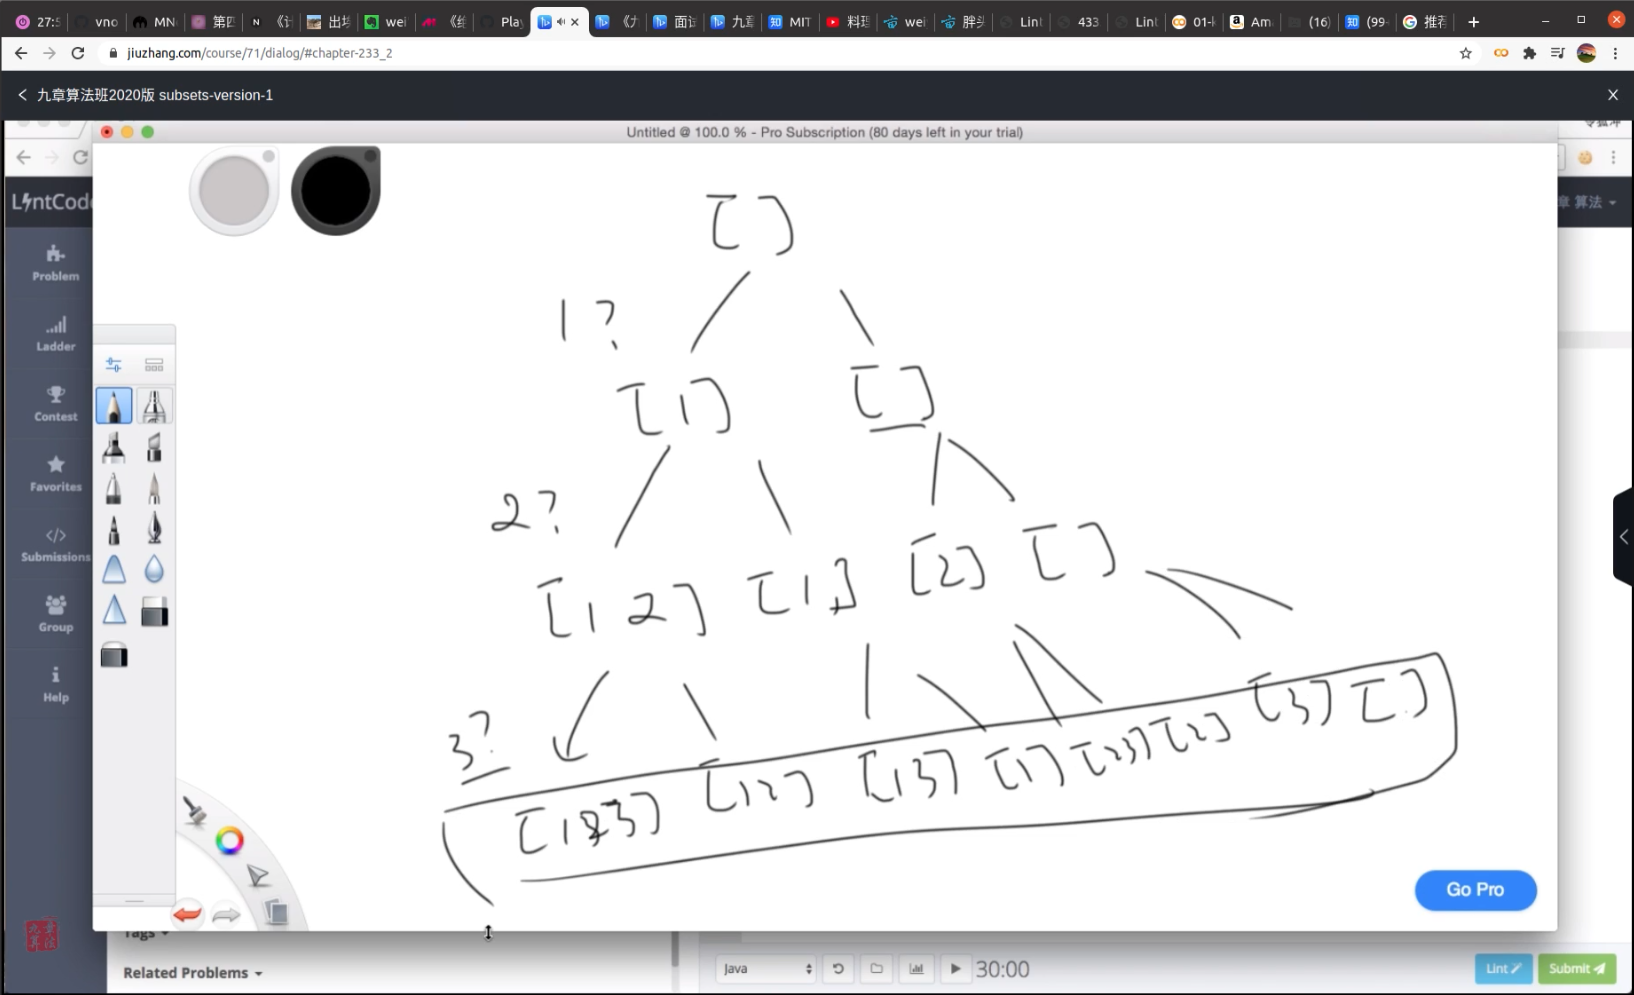 27:5
vno
MN
第四
《计
出埃
wei
《纟
Play
《力
面试
九章
MIT
料理
wei
胖头
Lint
433
Lint
01-l
Am
(16)
(99-
推荐
jiuzhang.com/course/71/dialog/#chapter-233_2
九章算法班2020版 subsets-version-1
Untitled @ 100.0 % - Pro Subscription (80 days left in your trial)
令狐冲
LintCod
章 算法
Problem
Ladder
Contest
Favorites
Submissions
Group
Help
[ ]
1 ?
[1] [ ]
2 ?
[1 2] [1] [2] [ ]
3?
[123] [12] [13] [1] [23] [2] [3] [ ]
Go Pro
Tags
Related Problems
Java
30:00
Lint
Submit